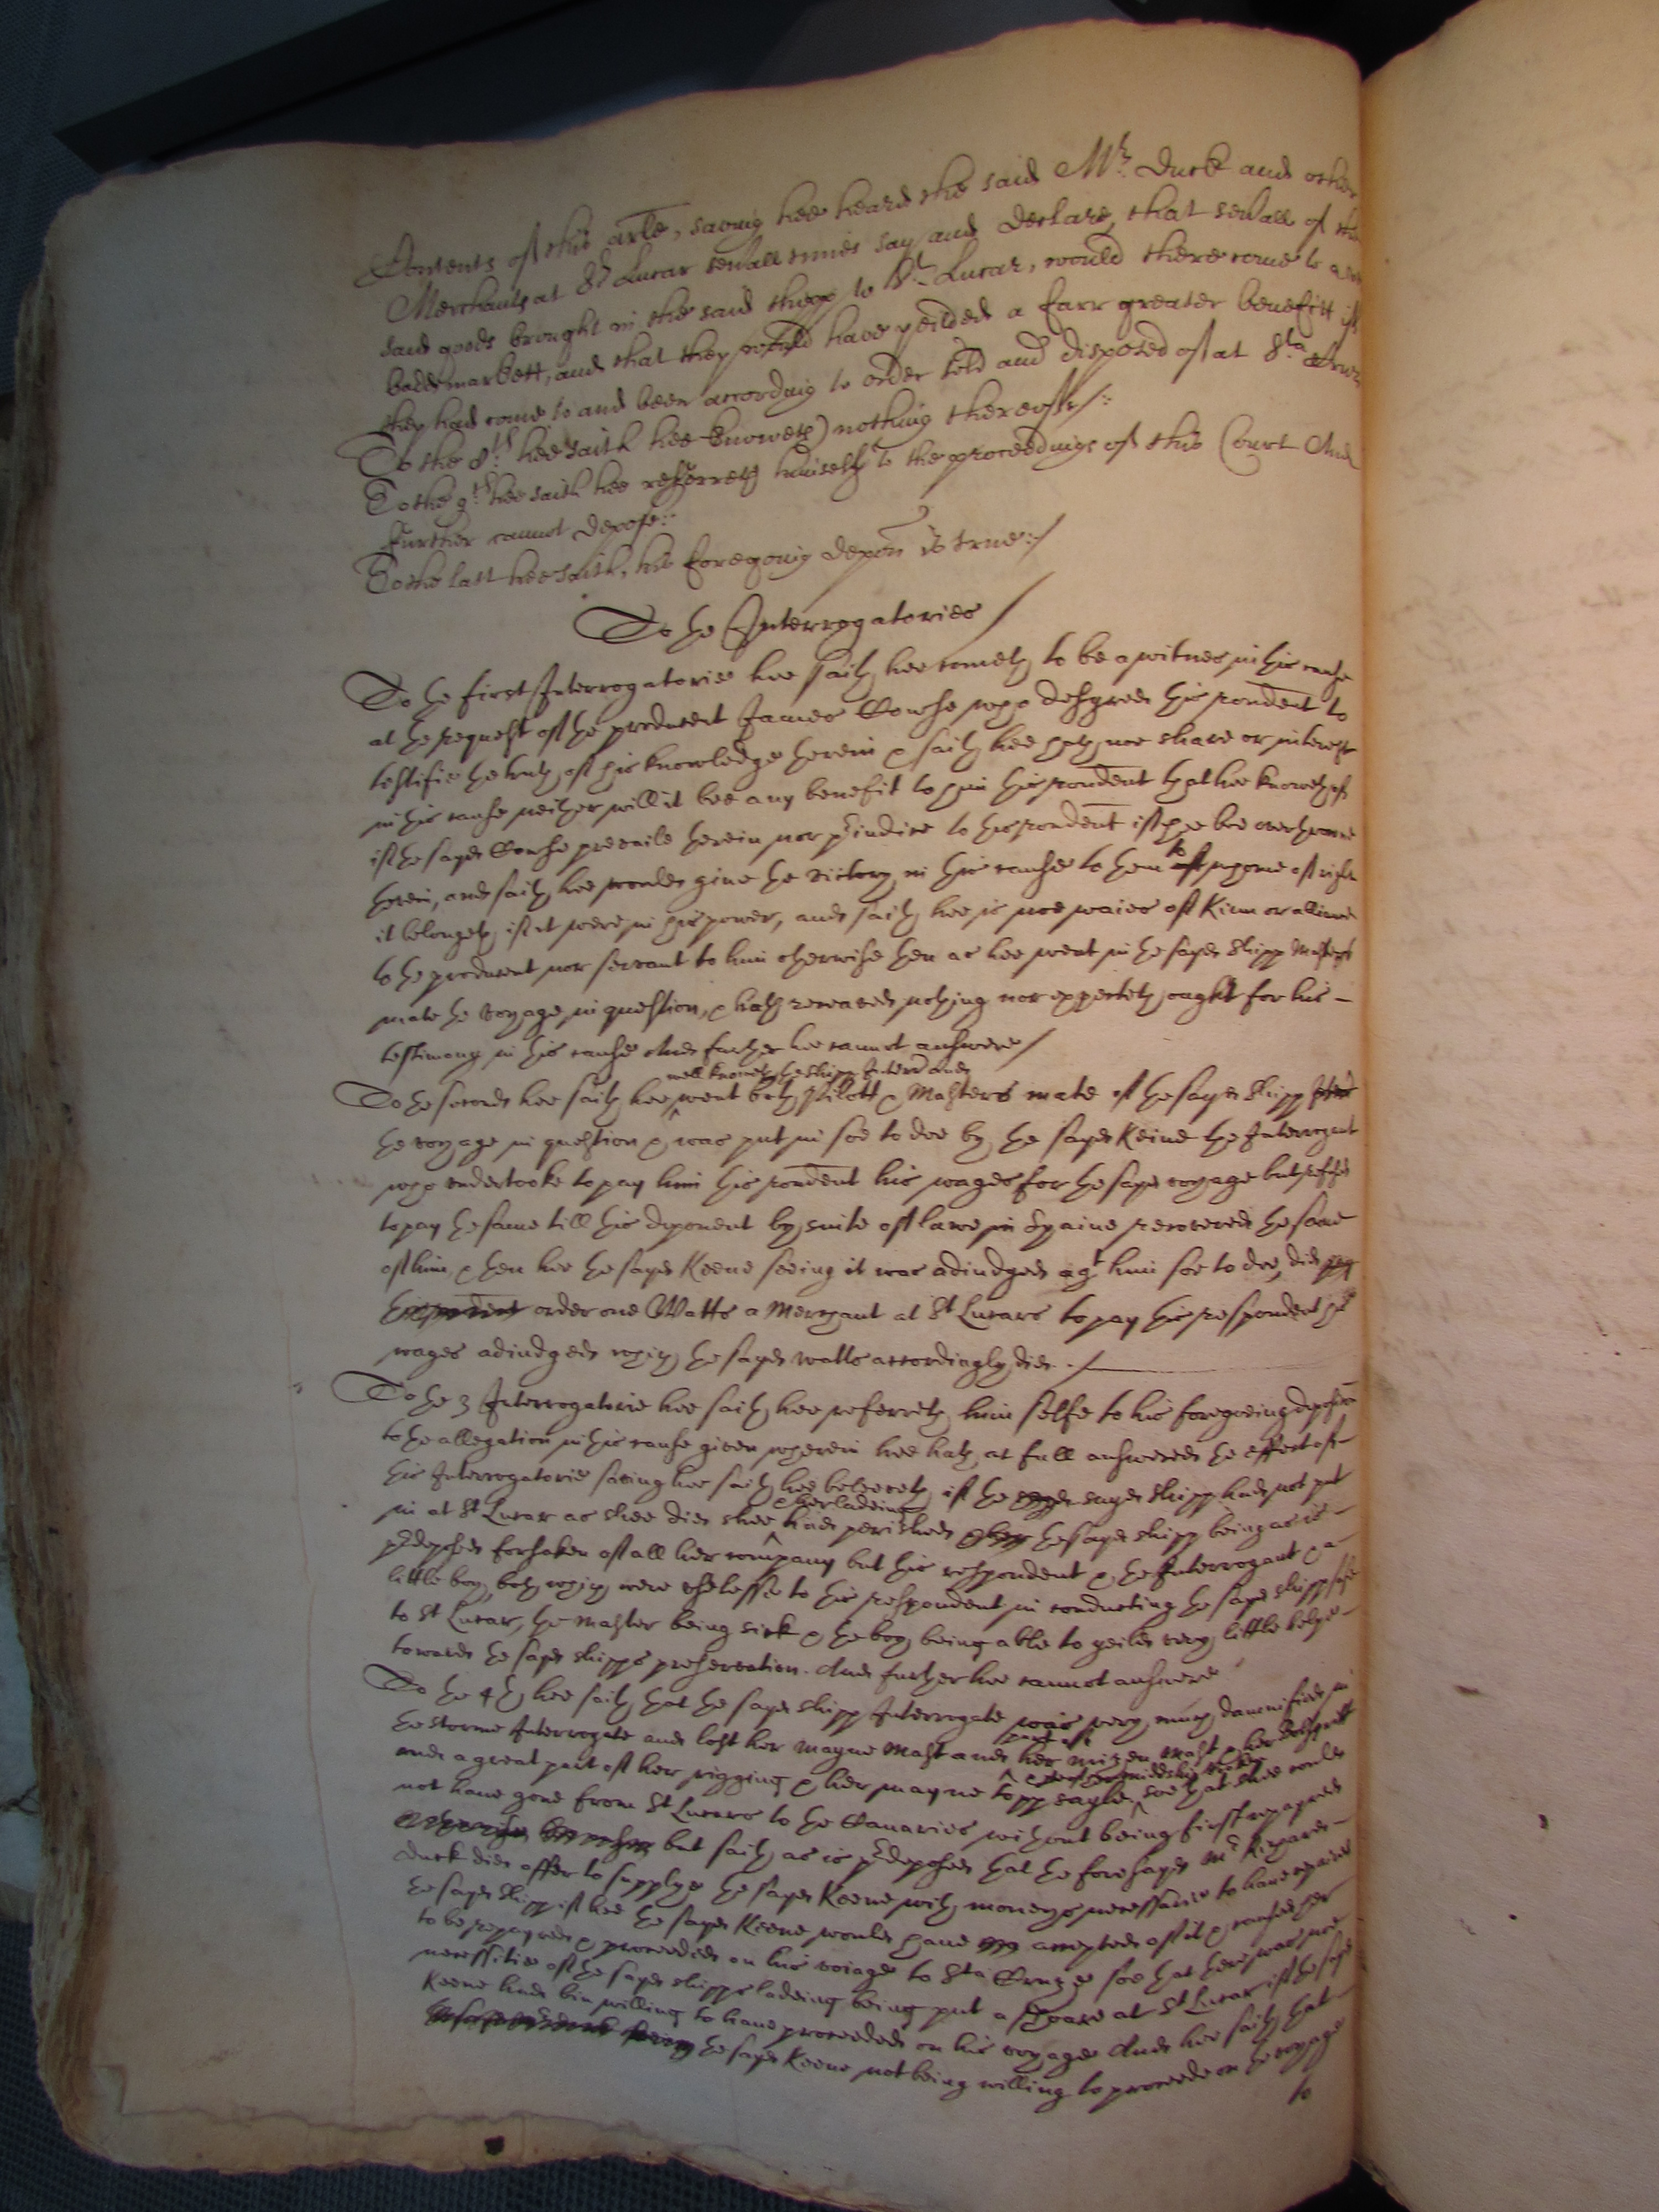 Contents of this arle, saving hee heard the said Mr. Duck and other
Merchants at St Lucar severall times say and declare, that severall of the
said goods brought in the said shipp to St. Lucar, would there come to a
badd markett, and that they would have yeilded a farr greater benefitt if
they had come to and been according to order sold and disposed of at Sta Cruze
To the 8th. hee saith hee knoweth nothing thereof./:
To the 9th hee saith hee referreth himselfe to the proceedings of this Court And
further cannot depose:
To the last hee saith, his foregoing depon is true:/
To the Interrogatories /
To the first Interrogatorie hee saith hee cometh to be a witnes in this cause
at the request of the producent James Cowse who desyred this rondent to
testifie the truth of his knowledge herein & saith hee hath noe share or interest
in this cause neither will it bee any benefit to him this rondent that hee knoweth of
if the sayd Cowse prevaile herein nor preiudice to this rondent if hee bee overthrowne
herein, and saith hee would give the victory in this cause to them to whome of right
it belongeth if it were in his power, and saith hee is noe waies of kinn or alliance
to the producent nor servant to him otherwise then as hee went in the sayd shipp Masters
mate the voyage in question, & hath receaved nothing nor expecteth ought for his -
testimony in this cause And further hee cannot answere /
well knoweth the shipp Interr and
To the second hee saith hee went both Pilott & Masters mate of the sayd shipp
the voyage in question & was put in soe to doe by the sayd Keene the Interrogat
who undertooke to pay him this rondent his wages for the sayd voyage but refused
to pay the same till this deponent by suite of lawe in Spaine recovered the same
of him, & then hee the sayd Keene seeing it was adiudged agt him soe to doe, did
order one Watts a Merchant at St Lucars to pay this respondent his
wages adiudged which the sayd Watts accordingly did. /
To the 3 Interrogatorie hee saith hee referreth him selfe to his foregoeing deposicon
to the allegation in this cause given wherein hee hath at full answered the effect of -
this Interrogatorie saving hee saith hee beleeveth if the sayd shipp had not put
& her ladeing
in at St Lucar as shee did shee had perished the sayd shipp being as is -
predeposed forsaken of all her company but this respondent & the Interrogant & a -
little boy, both which were uselesse to this respondent in conducting the sayd shipp safe
to St Lucar, the Master being sick & the boy being able to yeild very little helpe -
towards the sayd shipps preservation. And further hee cannot answere
To the 4th hee saith that the sayd shipp Interrogate was very much damnified in
the storme Interrogate and lost her mayne Mast and part of her mizen Mast & her Boltspritt
and a great part of her rigging & her mayne topp sayle, soe that shee could
not have gone from St Lucars to the Canaries without being first repayred
but saith as is predeposed that the foresayd Mr Richard -
Duck did offer to supply the sayd Keene with moneys necessarie to have repaired
the sayd shipp if hee the sayd Keene would have accepted of it & caused her
to be repayred & proceeded on his voiage to Sta Cruze soe that there was noe
necessitie of the sayd shipps ladeing being put a shoare at St Lucar if the sayd
Keene had bin willing to have proceeded on his voyage And hee saith that -
the sayd Keene not being willing to proceede on the voyage
to